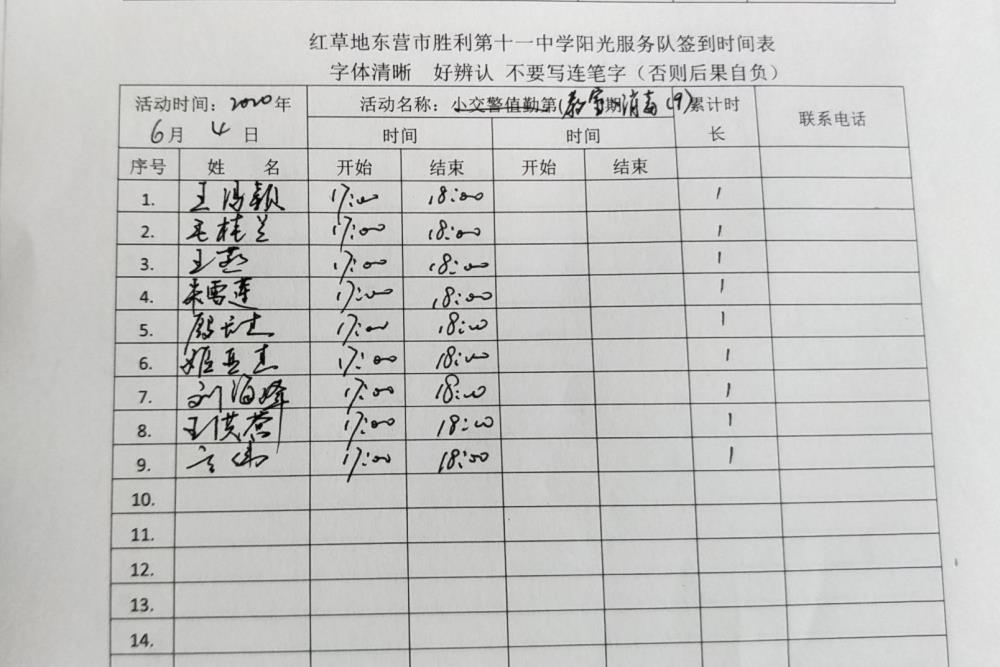 红草地东营市胜利第十一中学阳光服务队签到时间表
字体清晰 好辨认 不要写连笔字（否则后果自负）
活动时间：2020年 活动名称：小交警值勤第(教室期消毒(9) 累计时长 联系电话
6月 4日 时间 时间
序号 姓 名 开始 结束 开始 结束
1. 王 17:00 18:00 1
2. 毛桂兰 17:00 18:00 1
3. 王燕 17:00 18:00 1
4. 雪莲 17:00 18:00 1
5. 17:00 18:00 1
6. 姬 17:00 18:00 1
7. 刘海峰 17:00 18:00 1
8. 王洪燕 17:00 18:00 1
9. 伟 17:00 18:00 1
10.
11.
12.
13.
14.